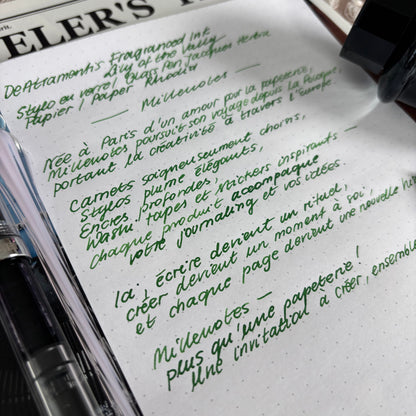 ELER'S
DeAtraments Fragranced Ink
Lily of the Valley
Stylo en verre / Glass Pen Jacques Herbin
Papier / Paper Rhodia
— Millenotes —
Née à Paris d'un amour par la papeterie,
Millenotes poursuit son voyage depuis la Pologne,
portant la créativité à travers l'Europe.
Carnets soigneusement choisis,
Stylos plume élégants,
Encres profondes,
Washi tapes et stickers inspirants —
chaque produit accompagne
votre journaling et vos idées.
Ici, écrire devient un rituel,
créer devient un moment à soi,
et chaque page devient une nouvelle
Millenotes —
plus qu'une papeterie!
Une invitation à créer, ensemble